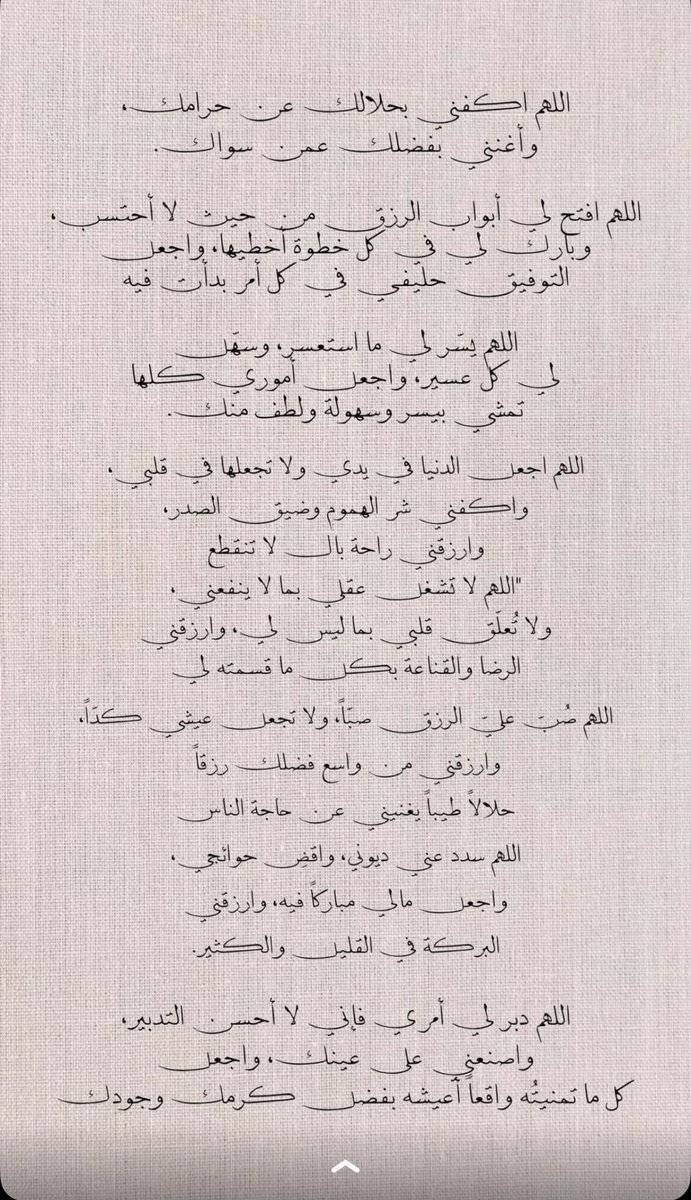 اللهم اكفني بحلالك عن حرامك،
وأغنني بفضلك عمن سواك.
اللهم افتح لي أبواب الرزق من حيث لا أحتسب،
وبارك لي في كل خطوة أخطيها، واجعل
التوفيق حليفي في كل أمر بدأت فيه
اللهم يسّر لي ما استعسر، وسهّل
لي كل عسير، واجعل أموري كلها
تمشي بيسر وسهولة ولطف منك.
اللهم اجعل الدنيا في يدي ولا تجعلها في قلبي،
واكفني شر الهموم وضيق الصدر،
وارزقني راحة بال لا تنقطع
"اللهم لا تشغل عقلي بما لا ينفعني،
ولا تُعلّق قلبي بما ليس لي، وارزقني
الرضا والقناعة بكل ما قسمته لي
اللهم صُبّ عليّ الرزق صبّاً، ولا تجعل عيشي كدّاً،
وارزقني من واسع فضلك رزقاً
حلالاً طيباً يغنيني عن حاجة الناس
اللهم سدد عني ديوني، واقضِ حوائجي،
واجعل مالي مباركاً فيه، وارزقني
البركة في القليل والكثير.
اللهم دبر لي أمري فإني لا أحسن التدبير،
واصنعني على عينك، واجعل
كل ما تمنيتُه واقعاً أعيشه بفضل كرمك وجودك